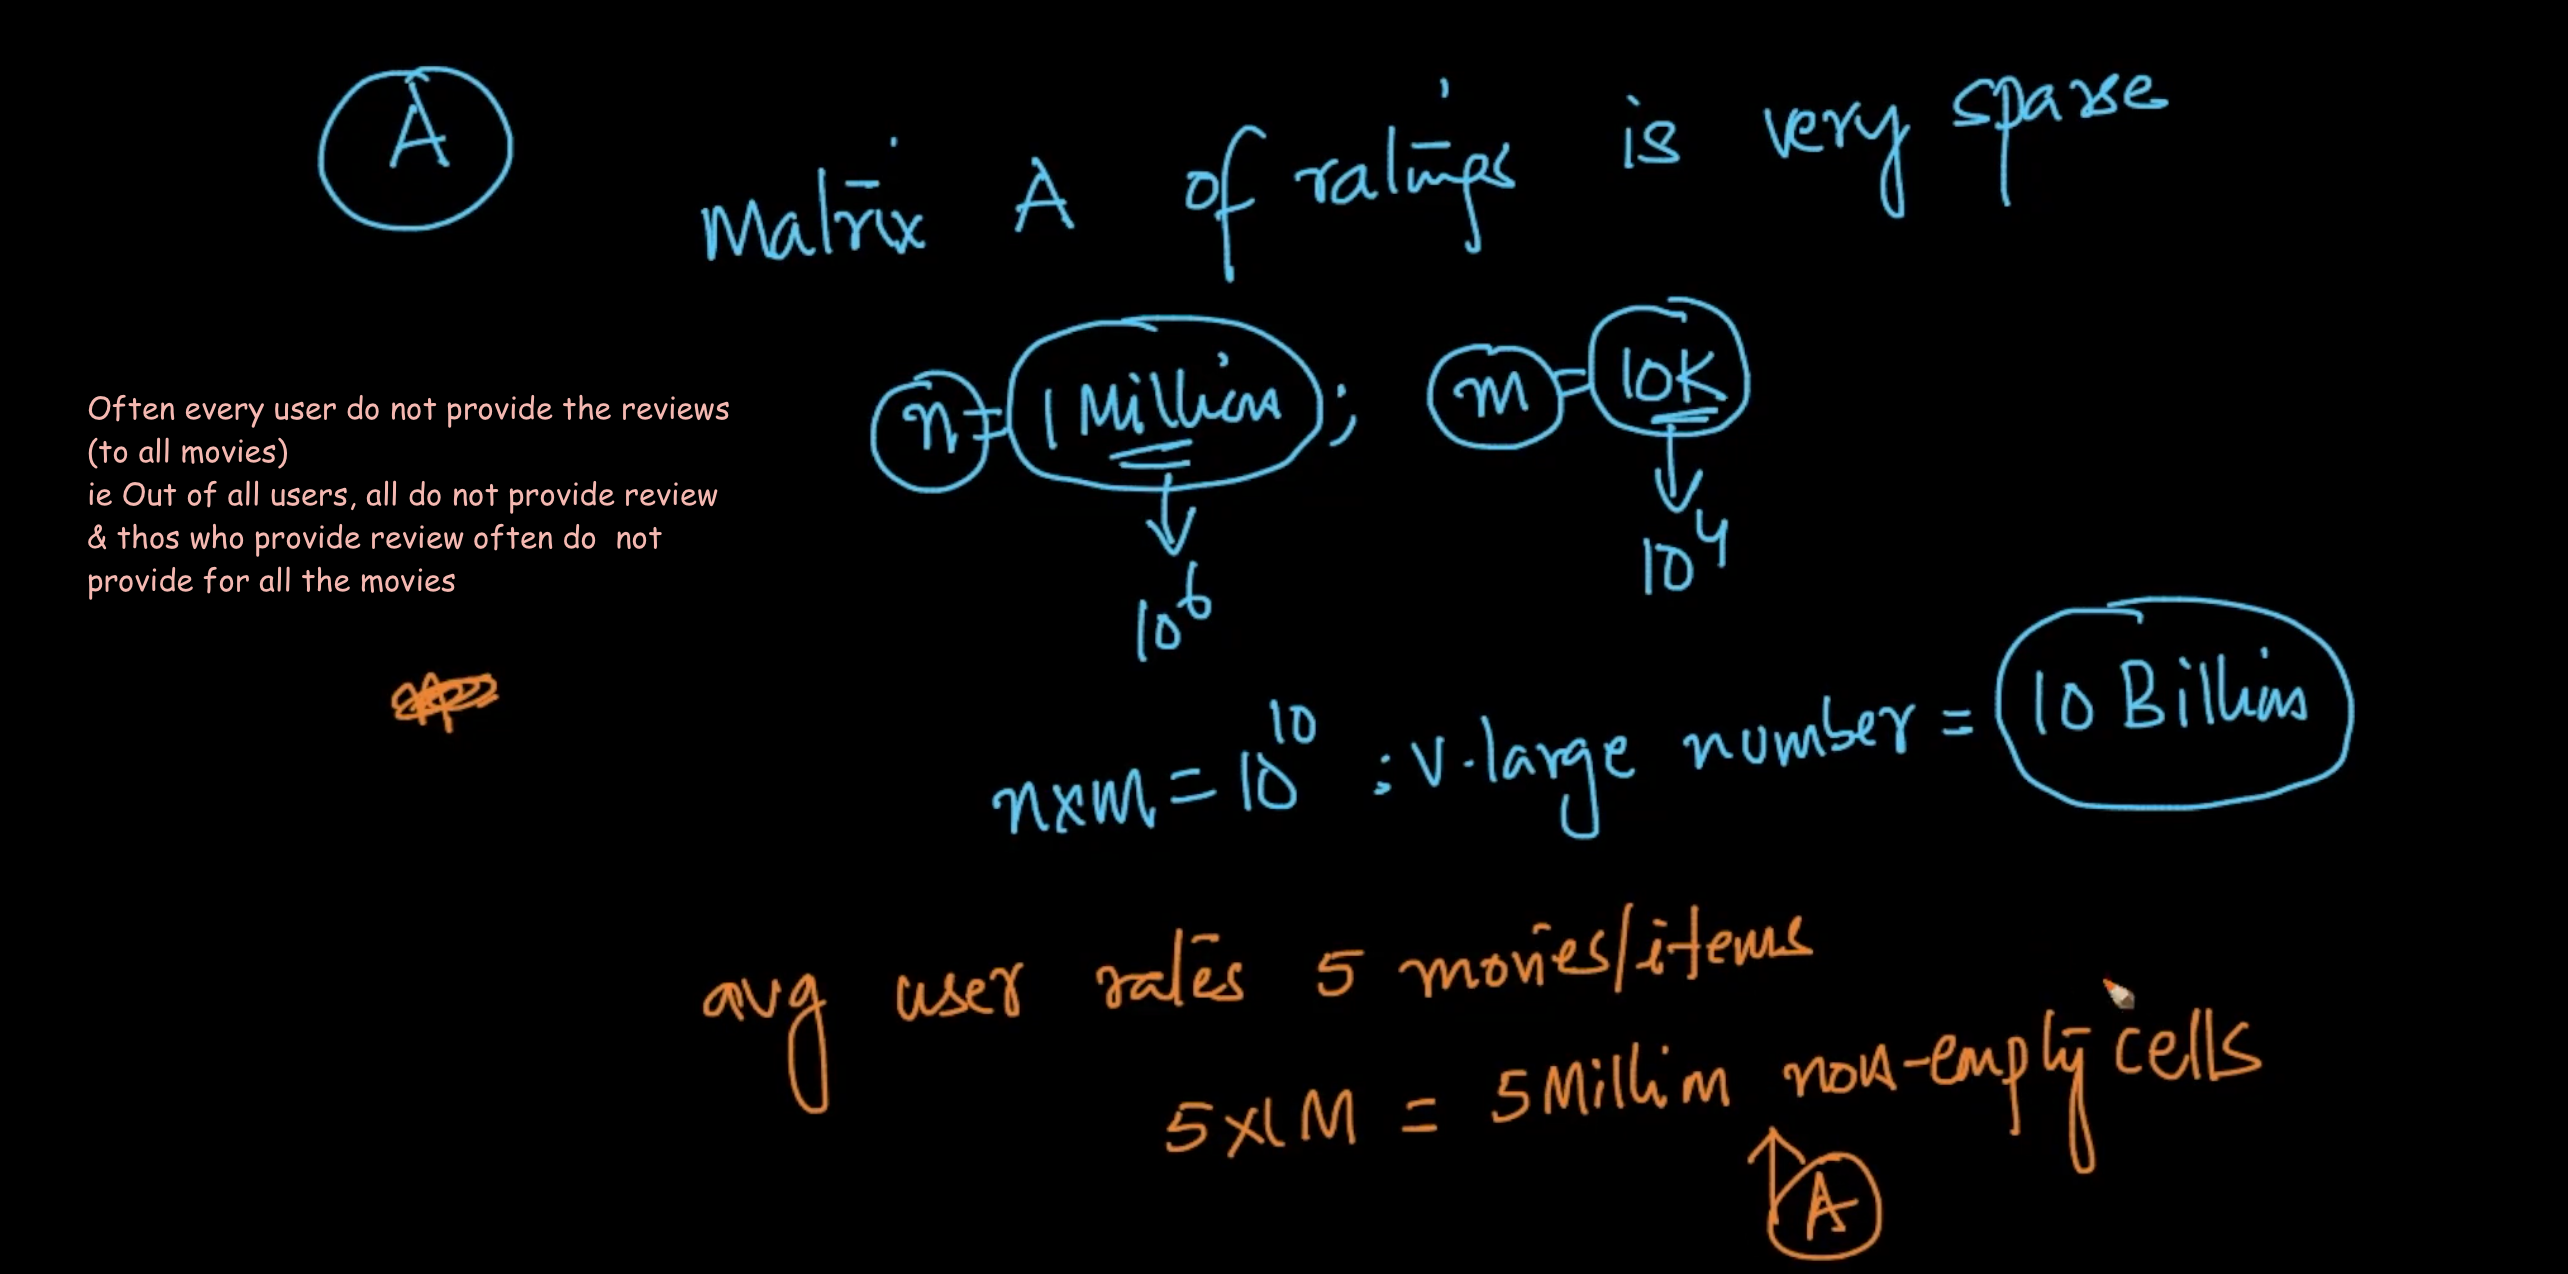 A
Matrix A of ratings is very sparse
n = 1 Million ; m = 10K
Often every user do not provide the reviews
(to all movies)
ie Out of all users, all do not provide review
& thos who provide review often do  not
provide for all the movies
10^6
10^4
n×m = 10^10 : v.large number = 10 Billion
avg user rates 5 movies/items
5×1M = 5 Million non-empty cells
A